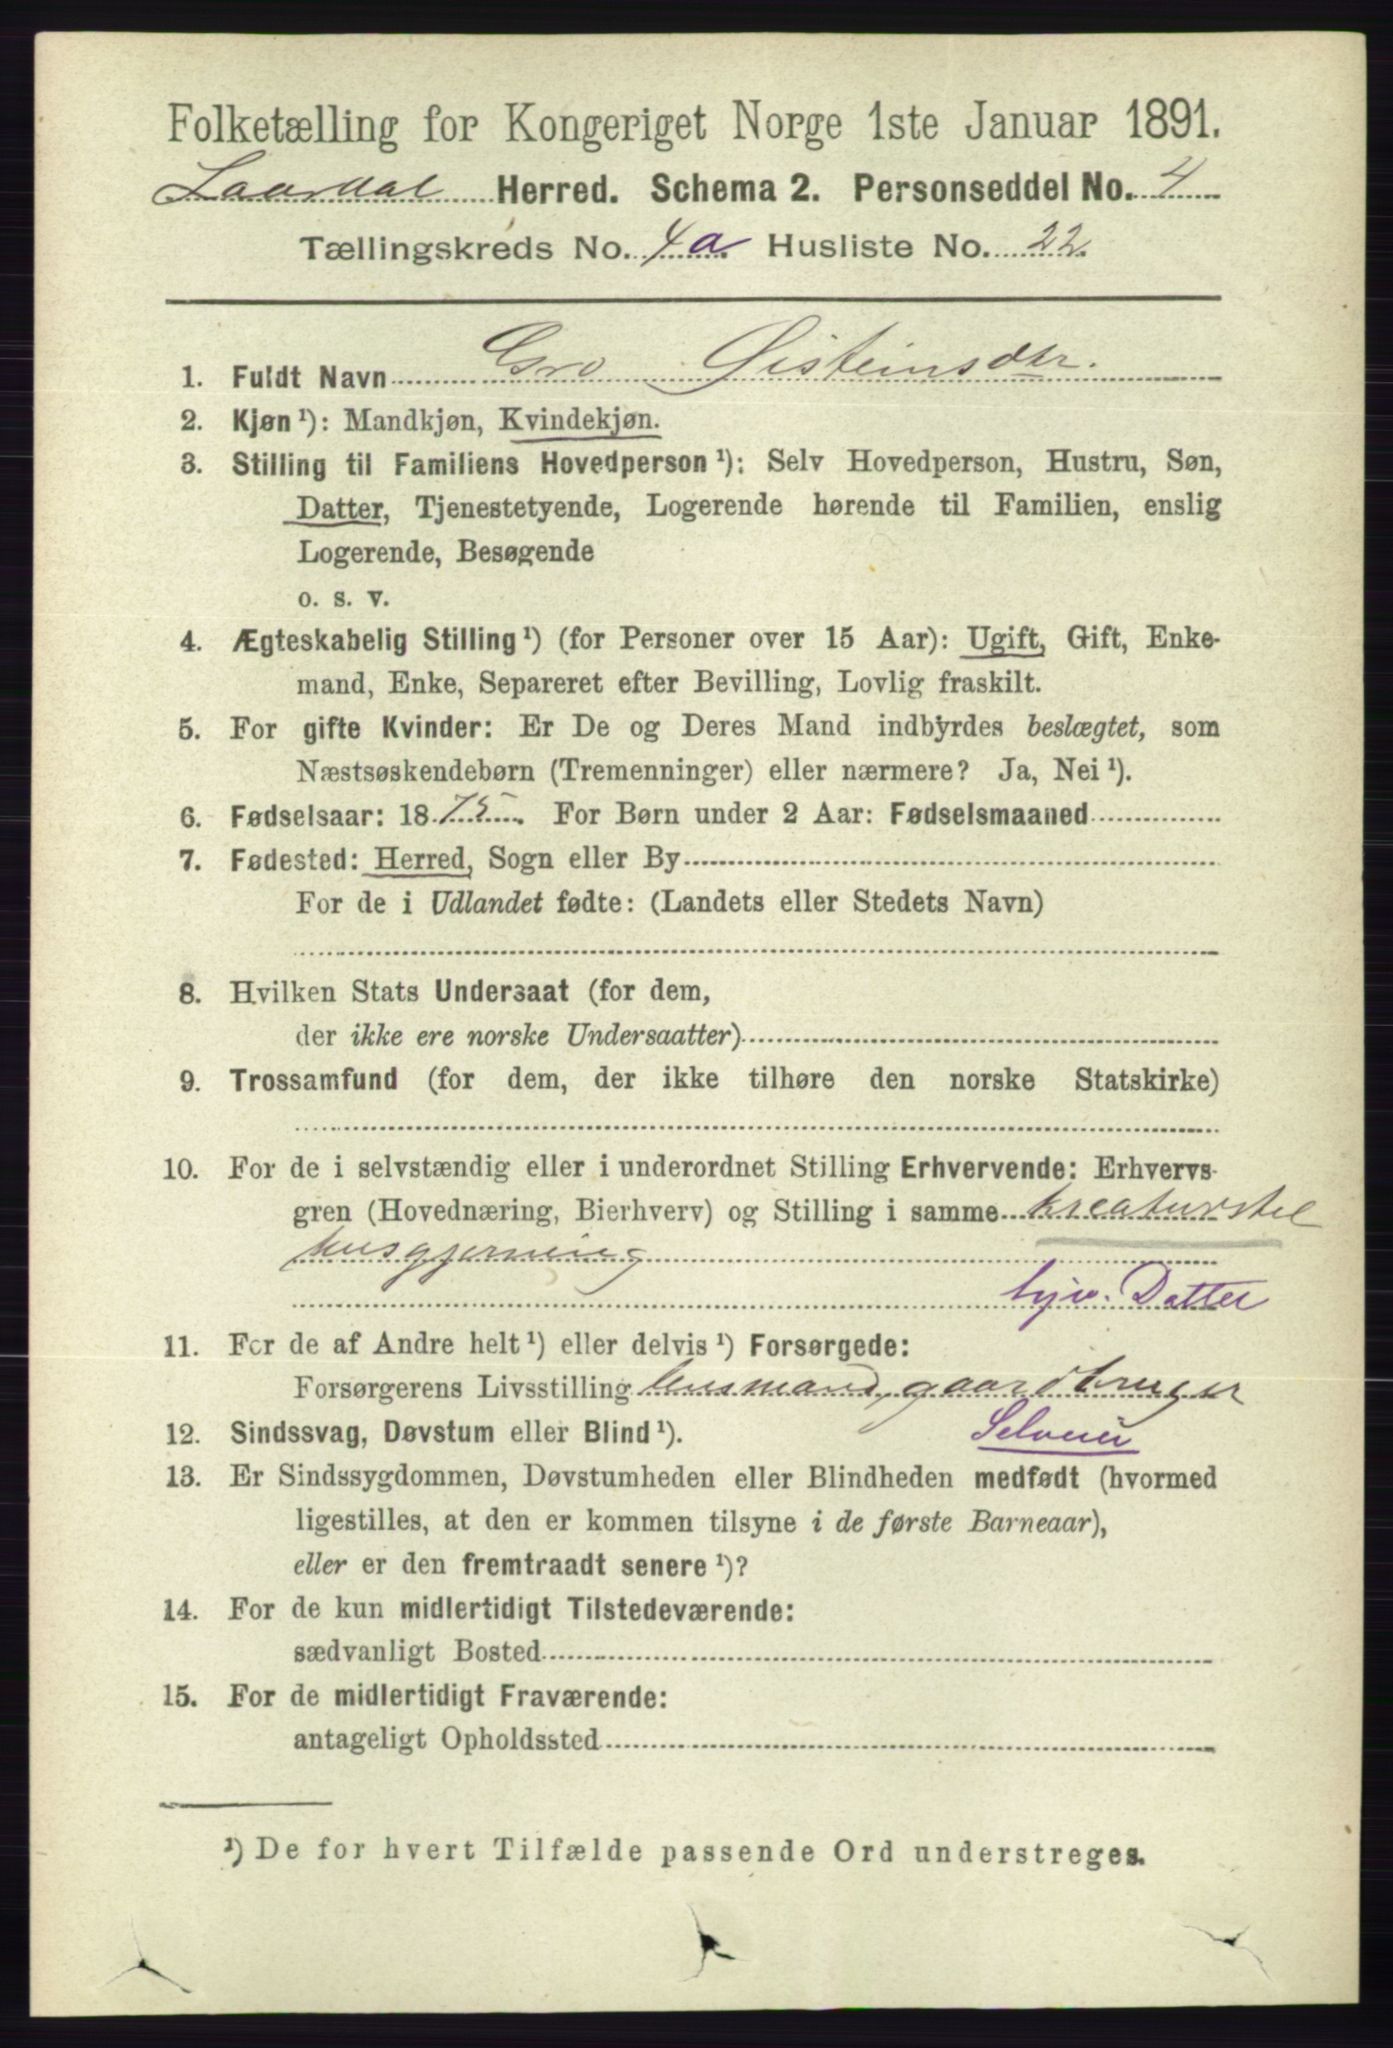 Folketælling for Kongeriget Norge 1ste Januar 1891.
Laardal Herred. Schema 2. Personseddel No. 4
Tællingskreds No. 4a Husliste No. 22
1. Fuldt Navn Gro Øisteinsdtr.
2. Kjøn ¹): Mandkjøn, Kvindekjøn.
3. Stilling til Familiens Hovedperson ¹): Selv Hovedperson, Hustru, Søn,
Datter, Tjenestetyende, Logerende hørende til Familien, enslig
Logerende, Besøgende
o. s. v.
4. Ægteskabelig Stilling ¹) (for Personer over 15 Aar): Ugift, Gift, Enke-
mand, Enke, Separeret efter Bevilling, Lovlig fraskilt.
5. For gifte Kvinder: Er De og Deres Mand indbyrdes beslægtet, som
Næstsøskendebørn (Tremenninger) eller nærmere? Ja, Nei ¹).
6. Fødselsaar: 1875. For Børn under 2 Aar: Fødselsmaaned
7. Fødested: Herred, Sogn eller By
For de i Udlandet fødte: (Landets eller Stedets Navn)
8. Hvilken Stats Undersaat (for dem,
der ikke ere norske Undersaatter)
9. Trossamfund (for dem, der ikke tilhøre den norske Statskirke)
10. For de i selvstændig eller i underordnet Stilling Erhvervende: Erhvervs-
gren (Hovednæring, Bierhverv) og Stilling i samme kreaturstel
husgjerning
hjv. Datter
11. For de af Andre helt ¹) eller delvis ¹) Forsørgede:
Forsørgerens Livsstilling husmand, gaardbruger
Selveier
12. Sindssvag, Døvstum eller Blind ¹).
13. Er Sindssygdommen, Døvstumheden eller Blindheden medfødt (hvormed
ligestilles, at den er kommen tilsyne i de første Barneaar),
eller er den fremtraadt senere ¹)?
14. For de kun midlertidigt Tilstedeværende:
sædvanligt Bosted
15. For de midlertidigt Fraværende:
antageligt Opholdssted
¹) De for hvert Tilfælde passende Ord understreges.